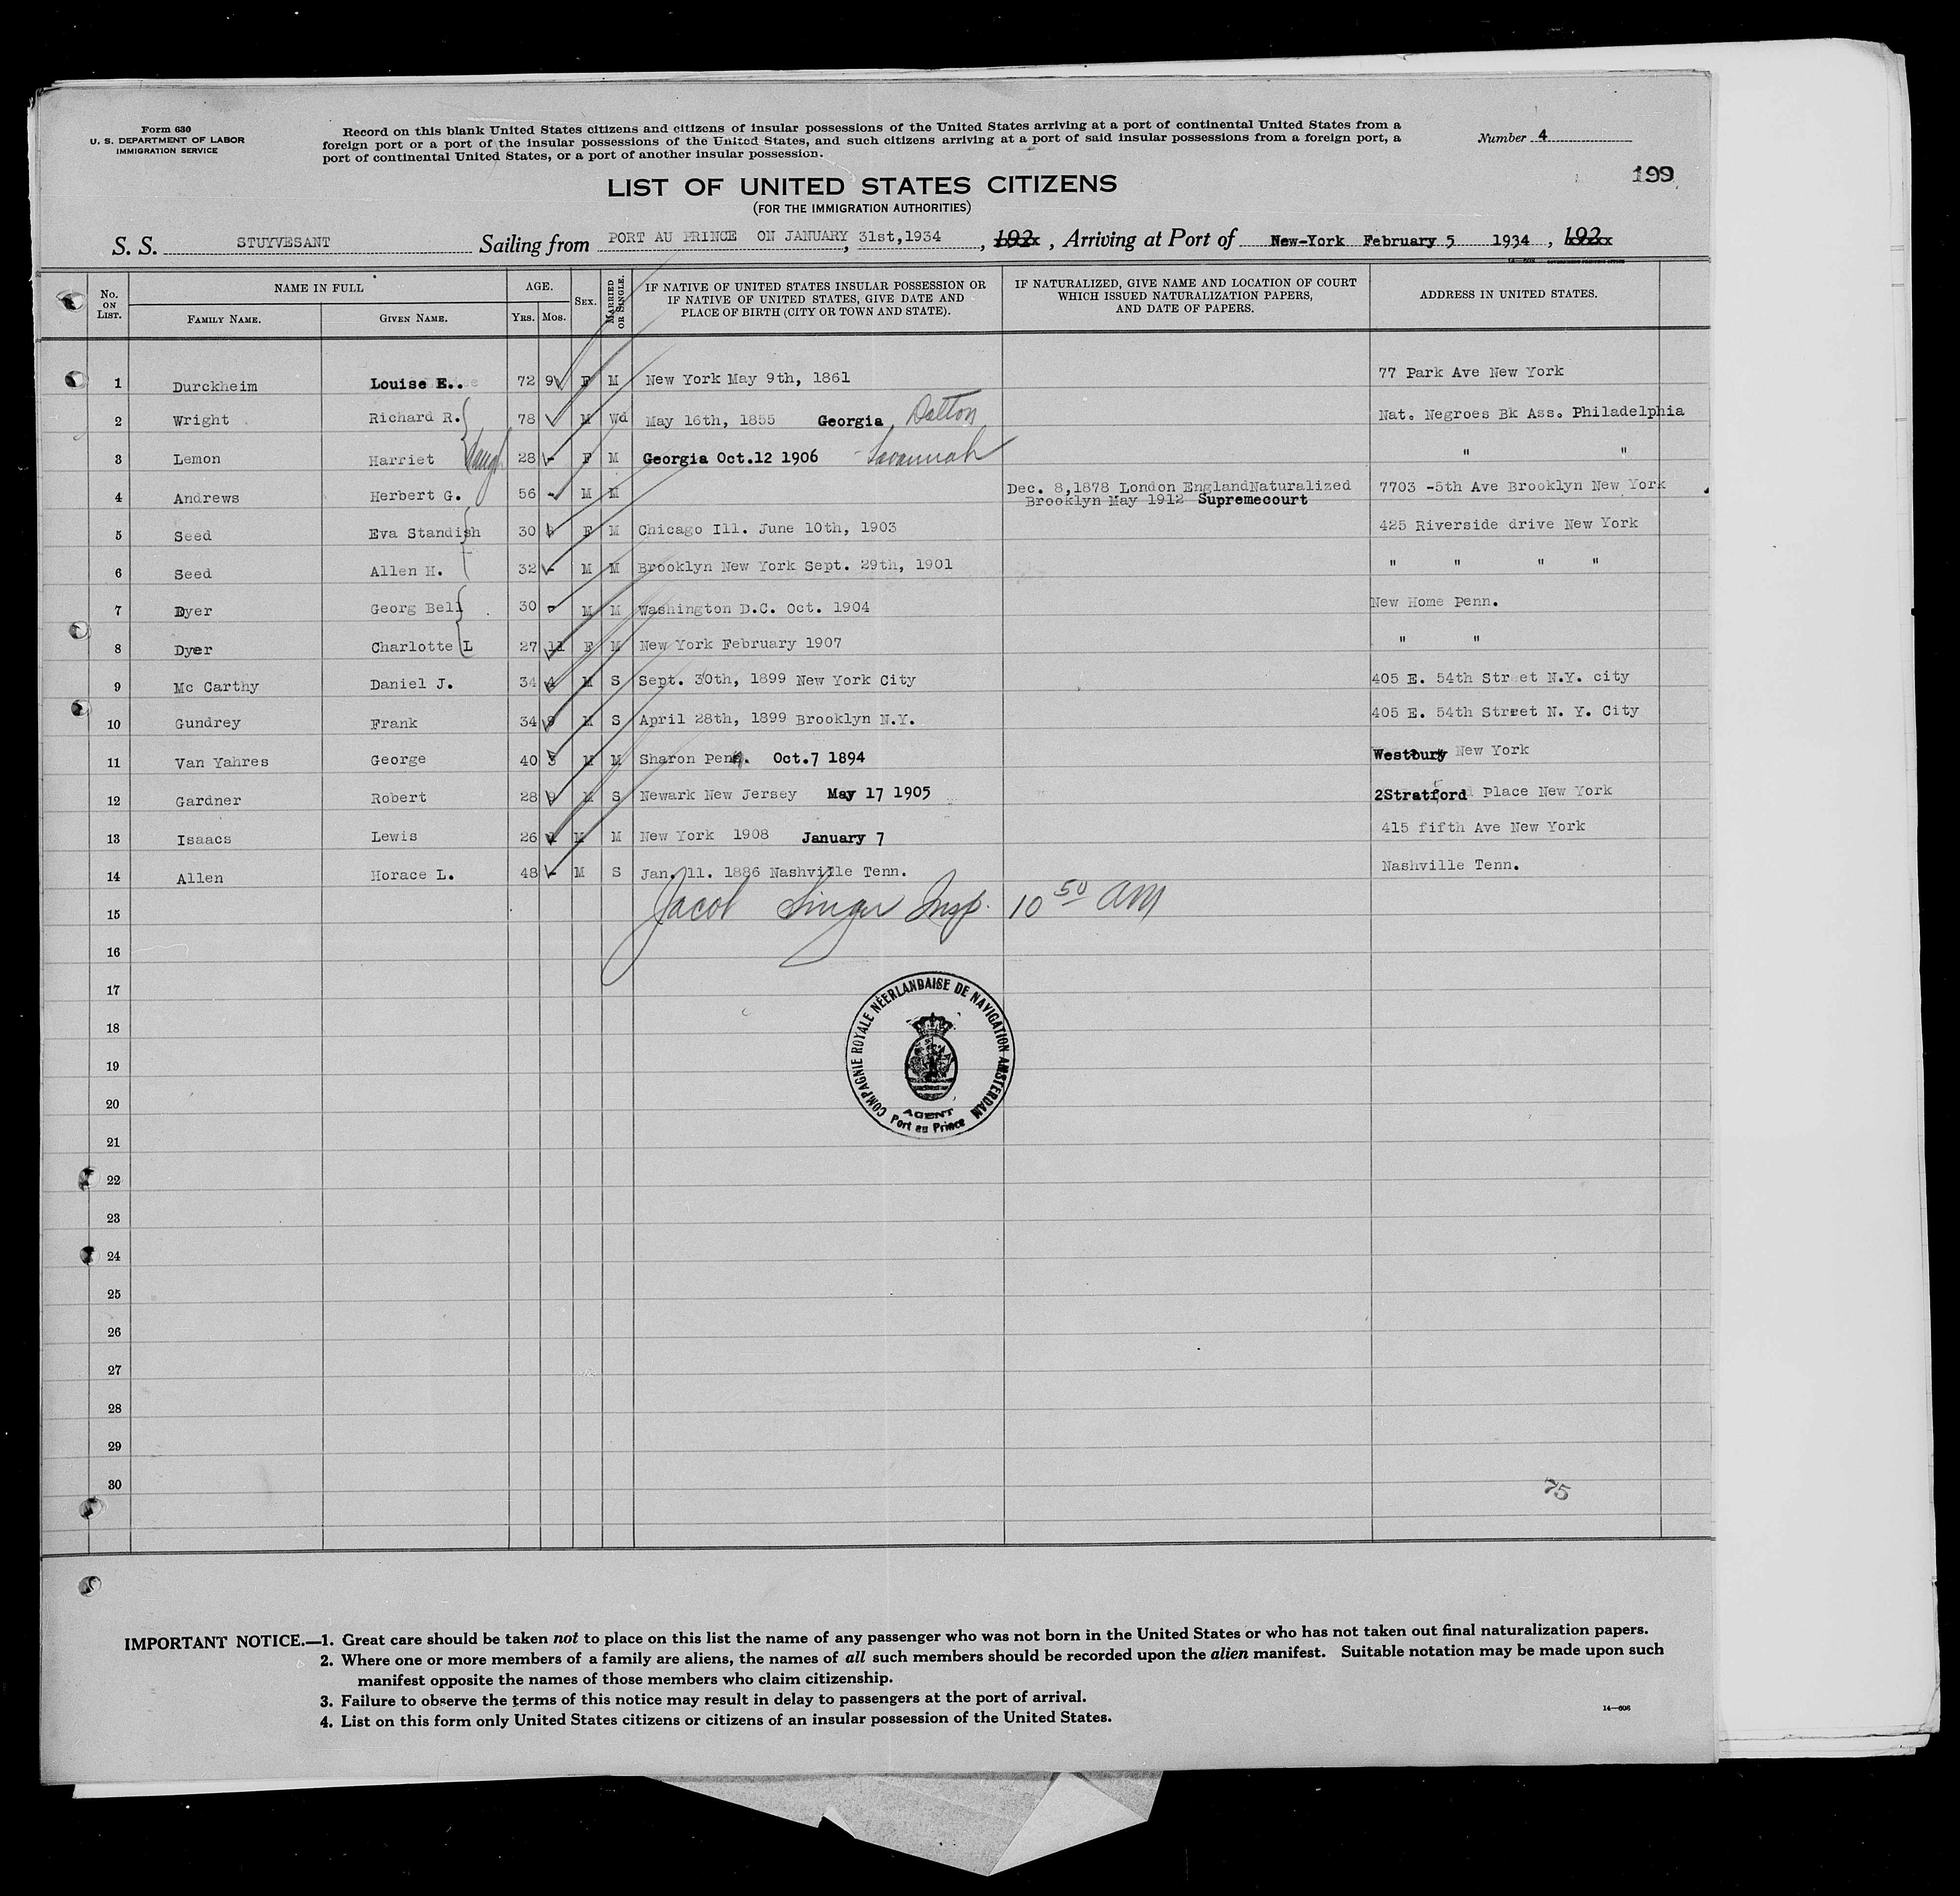 Form 630
U. S. DEPARTMENT OF LABOR
IMMIGRATION SERVICE
Record on this blank United States citizens and citizens of insular possessions of the United States arriving at a port of continental United States from a
foreign port or a port of the insular possessions of the United States, and such citizens arriving at a port of said insular possessions from a foreign port, a
port of continental United States, or a port of another insular possession.
Number 4
199
LIST OF UNITED STATES CITIZENS
(FOR THE IMMIGRATION AUTHORITIES)
S. S. STUYVESANT Sailing from PORT AU PRINCE ON JANUARY 31st,1934, 192xx, Arriving at Port of New-York February 5 1934, 192xx
No. ON LIST.
NAME IN FULL
FAMILY NAME.
GIVEN NAME.
AGE.
YRS. MOS.
SEX.
MARRIED OR SINGLE.
IF NATIVE OF UNITED STATES INSULAR POSSESSION OR
IF NATIVE OF UNITED STATES, GIVE DATE AND
PLACE OF BIRTH (CITY OR TOWN AND STATE).
IF NATURALIZED, GIVE NAME AND LOCATION OF COURT
WHICH ISSUED NATURALIZATION PAPERS,
AND DATE OF PAPERS.
ADDRESS IN UNITED STATES.
1 Durckheim Louise E.. 72 9 F M New York May 9th, 1861 77 Park Ave New York
2 Wright Richard R. 78 M Wd May 16th, 1855 Georgia, Dalton Nat. Negroes Bk Ass. Philadelphia
3 Lemon Harriet daugh 28 - F M Georgia Oct.12 1906 - Savannah " "
4 Andrews Herbert G. 56 - M M Dec. 8,1878 London EnglandNaturalized
Brooklyn May 1912 Supremecourt 7703 -5th Ave Brooklyn New York
5 Seed Eva Standish 30 F M Chicago Ill. June 10th, 1903 425 Riverside drive New York
6 Seed Allen H. 32 - M M Brooklyn New York Sept. 29th, 1901 " " " "
7 Dyer Georg Bell 30 M M Washington D.C. Oct. 1904 New Home Penn.
8 Dyer Charlotte L 27 11 F M New York February 1907 " "
9 Mc Carthy Daniel J. 34 4 M S Sept. 30th, 1899 New York City 405 E. 54th Street N.Y. city
10 Gundrey Frank 34 9 M S April 28th, 1899 Brooklyn N.Y. 405 E. 54th Street N. Y. City
11 Van Yahres George 40 3 M M Sharon Penn. Oct.7 1894 Westbury New York
12 Gardner Robert 28 9 M S Newark New Jersey May 17 1905 2Stratford Place New York
13 Isaacs Lewis 26 M M New York 1908 January 7 415 fifth Ave New York
14 Allen Horace L. 48 - M S Jan. 11. 1886 Nashville Tenn. Nashville Tenn.
Jacob Singer Insp. 10 50 AM
15
16
17
18
19
20
21
22
23
24
25
26
27
28
29
30
COMPAGNIE ROYALE NÉERLANDAISE DE NAVIGATION AMSTERDAM
AGENT
Port au Prince
75
IMPORTANT NOTICE.—1. Great care should be taken not to place on this list the name of any passenger who was not born in the United States or who has not taken out final naturalization papers.
2. Where one or more members of a family are aliens, the names of all such members should be recorded upon the alien manifest. Suitable notation may be made upon such
manifest opposite the names of those members who claim citizenship.
3. Failure to observe the terms of this notice may result in delay to passengers at the port of arrival.
4. List on this form only United States citizens or citizens of an insular possession of the United States.
14—606